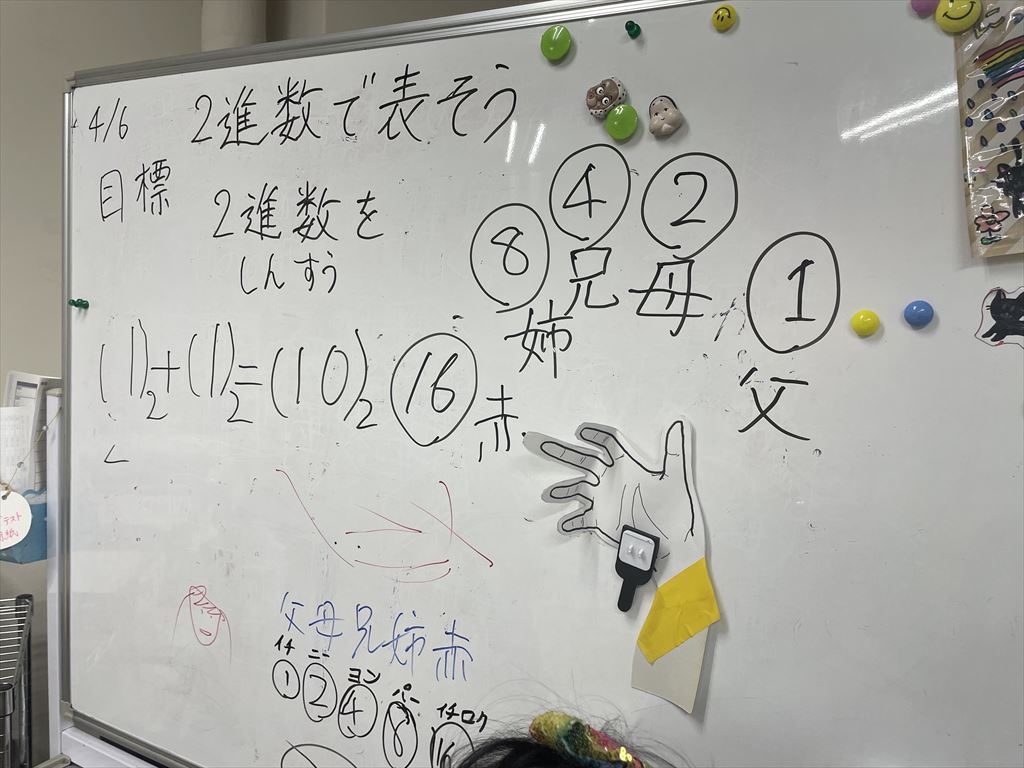 4/6 2進数で表そう
目標
2進数を
しんすう
④ ②
⑧ 兄 母 ①
姉 父
(1)₂+(1)₂=(10)₂ ⑯ 赤
父母兄姉赤
イチ ニー ヨン パー イチロク
① ② ④ ⑧
テスト